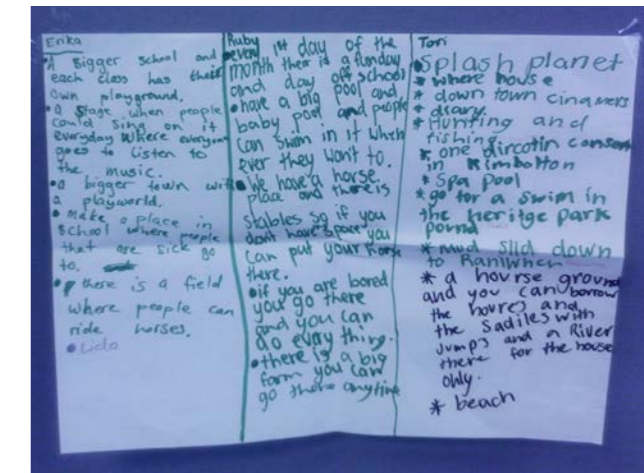 Erika
• A Bigger School and
each class has their
own playground.
• a stage when people
could sing on it
everyday where everyone
goes to listen to
the music.
• a bigger town with
a playworld.
• make a place in
school where people
that are sick go
to.
• there is a field
where people can
ride horses.
• Lido
Ruby
• every 1st day of the
month ther is a funday
and day off school
• have a big pool and
baby pool and people
can swim in it when
ever they wont to.
• We have a horse
place and there is
stables so if you
dont have space you
can put your horse
there.
• if you are bored
you go there
and you can
do every thing.
• there is a big
farm you can
go there anytime
Tori
• Splash planet
* where house
* down town cinamers
* diary
* Hunting and
fishing
* one dircotin consert
in Kimbolton
* Spa pool
* go for a swim in
the heritge park
pound
* mud slid down
to
* a hourse ground
and you can borrow
the houres and
the Sadiles with
Jumps and a River
there for the house
only.
* beach